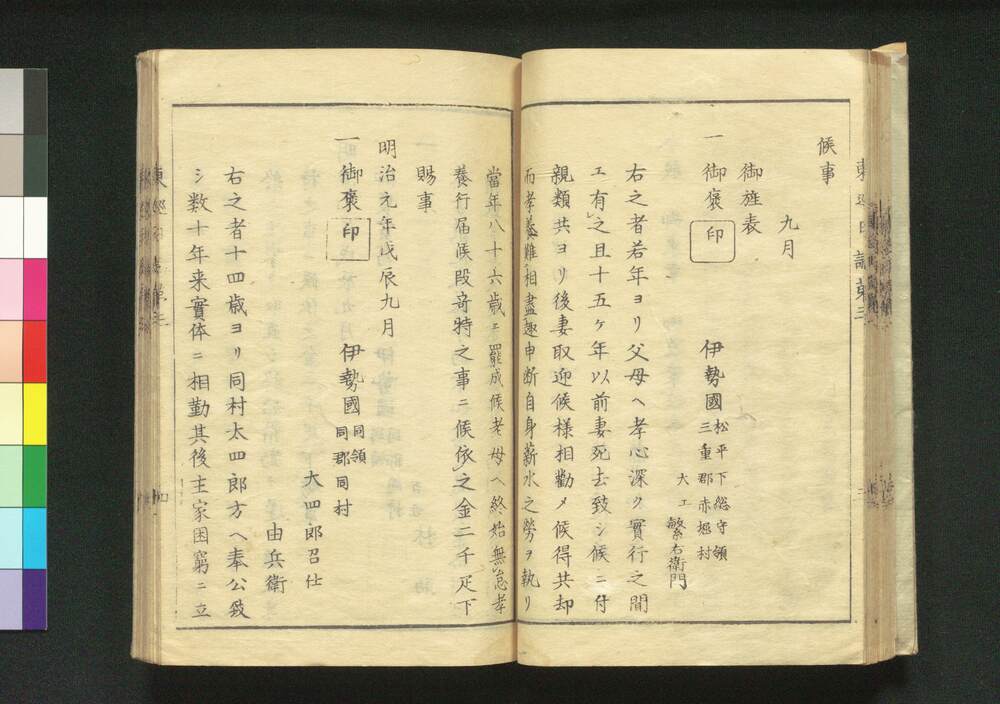 候事
九月
御旌表
一御褒 印 伊勢國
松平下総守領
三重郡赤堀村
大工 繁右衛門
右之者若年ヨリ父母ヘ孝心深ク實行之聞
エ有之且十五ヶ年以前妻死去致シ候ニ付
親類共ヨリ後妻取迎候様相勸メ候得共却
而孝養難相盡趣申断自身薪水之勞ヲ執リ
當年八十六歳ニ罷成候老母ヘ終始無怠孝
養行届候段奇特之事ニ候依之金二千疋下
賜事
明治元年戊辰九月
一御褒 印 伊勢國
同領
同郡同村
大四郎召仕
由兵衛
右之者十四歳ヨリ同村太四郎方ヘ奉公致
シ数十年来實体ニ相勤其後主家困窮ニ立